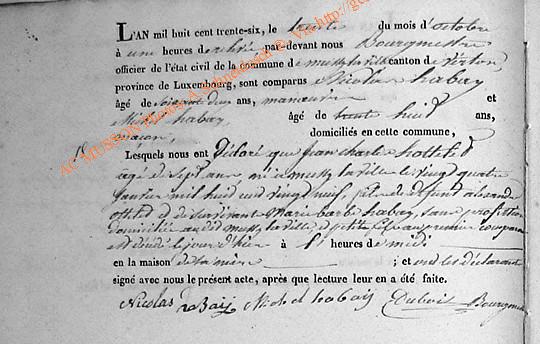 L'AN mil huit cent trente-six, le trente du mois d'octobre
à une heures de relevé par devant nous Bourgmestre
officier de l'état civil de la commune de mussy la ville canton de Virton
province de Luxembourg, sont comparus Nicolas habay
âgé de soixante deux ans, manoeuvre et
Michel habay, âgé de trente huit ans,
macon, domiciliés en cette commune,
Lesquels nous ont Déclaré que Jean charles
agé de sept ans né a mussy la ville le vingt quatre
janvier mil huit cent vingt neuf, fils de defunt
et de survivante Marie barbe habay, sans profession
domiciliée au dit mussy la ville, petit fils au premier comparant
est décédé le jour d'hier à heures de midi
en la maison de la mère ; et ont les déclarants
signé avec nous le présent acte, après que lecture leur en a été faite.
Nicolas haBaij Michel habaij Dubois Bourgmestre
AC MUSSON Photos A.Schneiders © - Via: http://ge